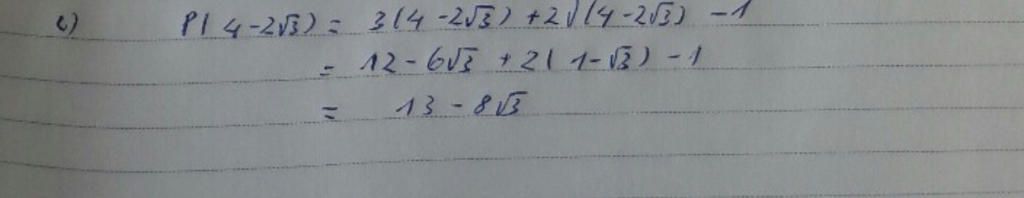 c) P(4-2√3) = 3(4-2√3) + 2√(4-2√3) - 1
= 12 - 6√3 + 2(1-√3) - 1
= 13 - 8√3